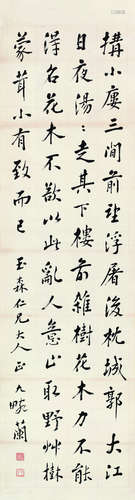 搆小廔三間前望浮屠後枕城郭大江
日夜湯〻走其下樓前雜樹花木力不能
得名花木不欲以此亂人意山取野艸樹
蒙茸小有致而已 玉森仁兄大人正 九畹蘭